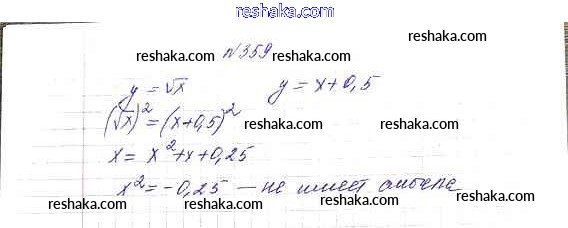 reshaka.com
№359
y = √x y = x+0,5
(√x)² = (x+0,5)²
x = x²+x+0,25
x² = -0,25 — не имеет смысла
reshaka.com reshaka.com
reshaka.com reshaka.com
reshaka.com reshaka.com
reshaka.com reshaka.com
reshaka.com reshaka.com